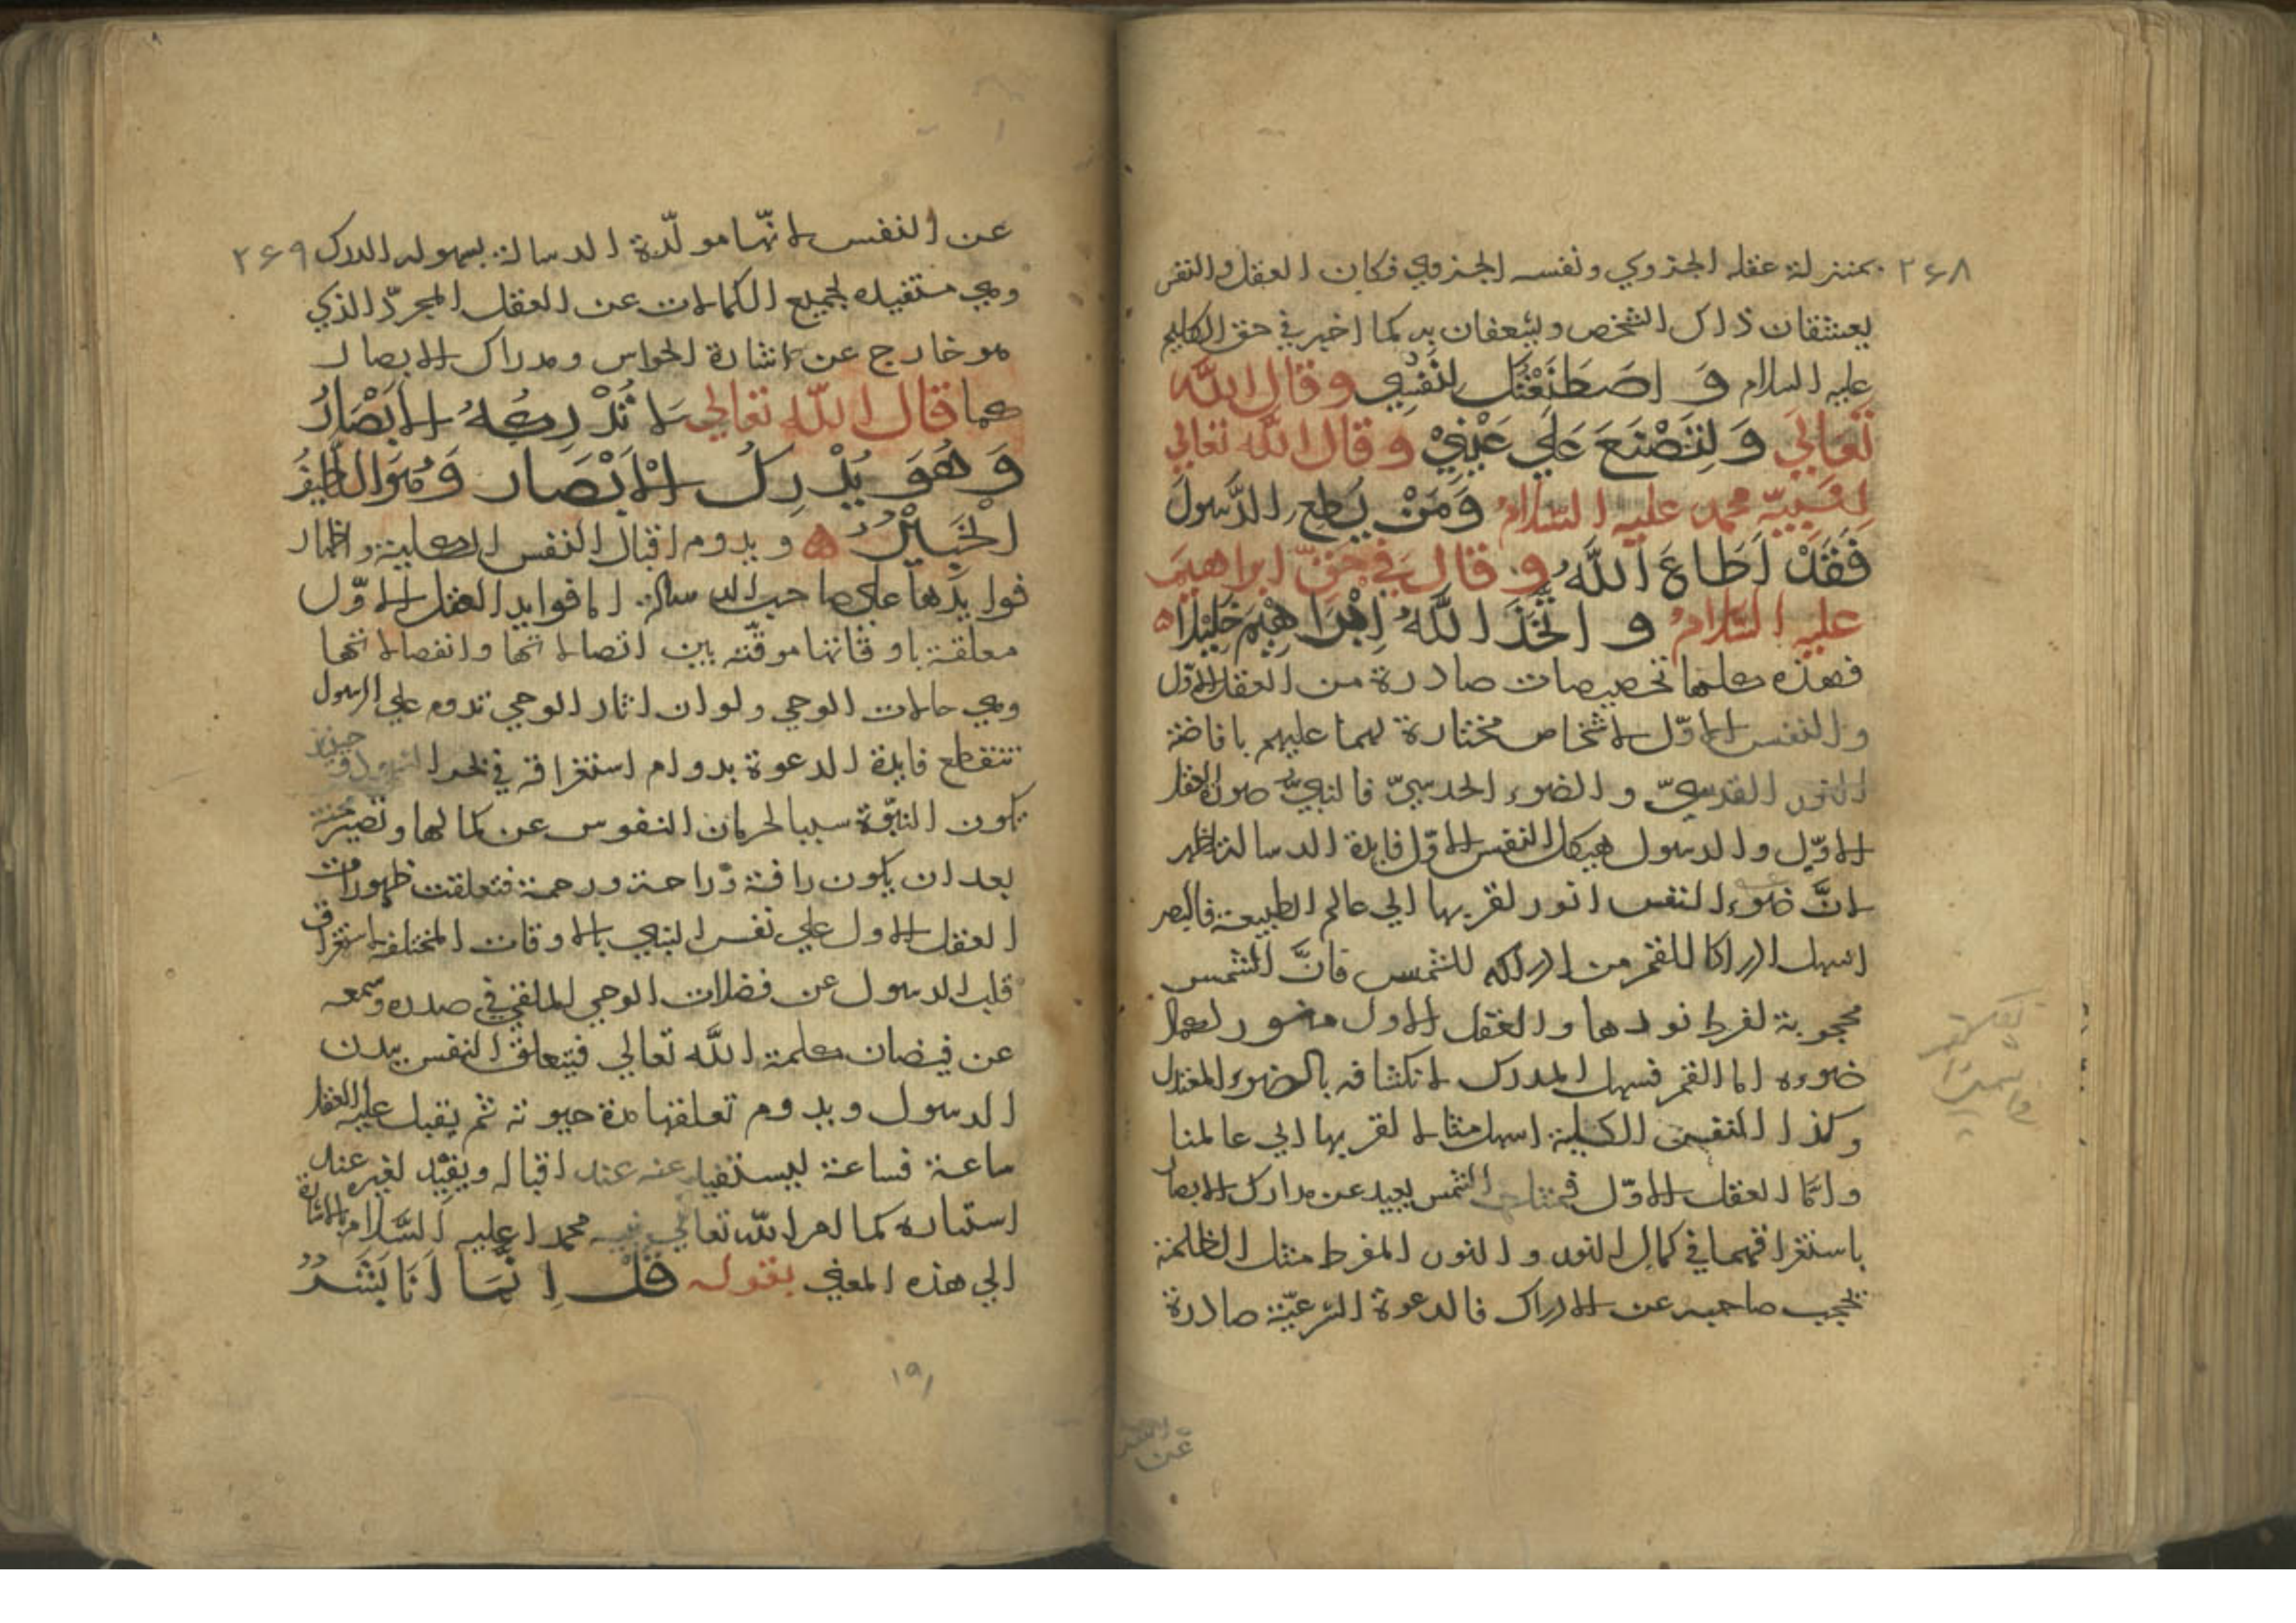 ٢٦٨
بمنزلة عقله الجزوي ونفسه الجزوي فكان العقل والنفس
يعشقان ذلك الشخص ويشعفان به كما اخبر في حق الكليم
عليه السلام وَ اصْطَنَعْتُكَ لِنَفْسِي وقال الله
تعالي وَلِتُصْنَعَ عَلَي عَيْنِيْ وقال الله تعالي
لنبيّه محمد عليه السلام وَمَنْ يُطِعِ الرَّسُولَ
فَقَدْ اَطَاعَ اللَّهَ وقال في حقّ ابراهيم
عليه السلام و اتَّخَذَ اللَّهُ اِبْرَاهِيْمَ خَلِيْلًا ه
فهذه كلها تخصيصات صادرة من العقل الاوّل
والنفس الاوّل لاشخاص مختارة لهما عليهم بافاضة
النور القدسيّ والضوء الحدسيّ فالنبيّ صورة العقل
الاوّل والرسول هيكل النفس الاوّل فايدة الرسالة اظهر
لانَّ ضوء النفس انور لقربها الي عالم الطبيعة فالبصر
اسهل ادراكا للقمر من ادراكه للشمس فانَّ الشمس
محجوبة لفرط نورها والعقل الاول مستور لكمال
ضوءه اما القمر فسهل المدرك لانكشافه بالضوء المعتدل
وكذا النفس الكلية اسهل مثالا لقربها الي عالمنا
وامّا العقل الاوّل فمثاله الشمس بعيد عن مدارك الابصار
باستغراقهما في كمال النور والنور المفرط مثل الظلمة
تحجب صاحبه عن الادراك فالدعوة الشرعيّة صادرة
عن النفس
٢٦٩
عن النفس لانّها مولّدة الرسالة بسهولة الدرك
وهي مستفيده لجميع الكمالات عن العقل المجرّد الذي
هو خارج عن اشارة الحواس ومدراك الابصار
كما قال الله تعالي لَا تُدْرِكُهُ الْاَبْصَارُ
وَهُوَ يُدْرِكُ الْاَبْصَارَ وَهُوَ اللَّطِيْفُ
الْخَبِيْرُ ه وبدوم اقبال النفس الكلية واظهار
فوايدها علي صاحب الرسالة اما فوايد العقل الاوّل
معلقة باوقاتها موقّته بين اتصالاتها وانفصالاتها
وهي حالات الوحي ولو ان اثار الوحي تدوم علي الرسول
تنقطع فايدة الدعوة بدوام استغراقه في بحر حينئذ
تكون النبّوة سببا لحرمان النفوس عن كمالها وتصير محنة
بعد ان يكون رافة وراحة ورحمة فتعلقت ظهورات
العقل الاول علي نفس النبي بالاوقات المختلفه لاستغراق
قلب الرسول عن فضلات الوحي الملقي في صدره وسمعه
عن فيضان كلمة اللَّه تعالي فيتعلق النفس ببدن
الرسول وبدوم تعلقها مدة حيوته ثم يقبل عليه العقل
ساعة فساعة ليستفيد عنه عند اقباله ويفيْد لغيره عند
استتاره كما امر اللّه تعالي نبيه محمدا عليه السَّلام بالاشارة
الي هذه المعني بقوله قُلْ اِنَّمَا اَنَا بَشَرٌ
١٩١